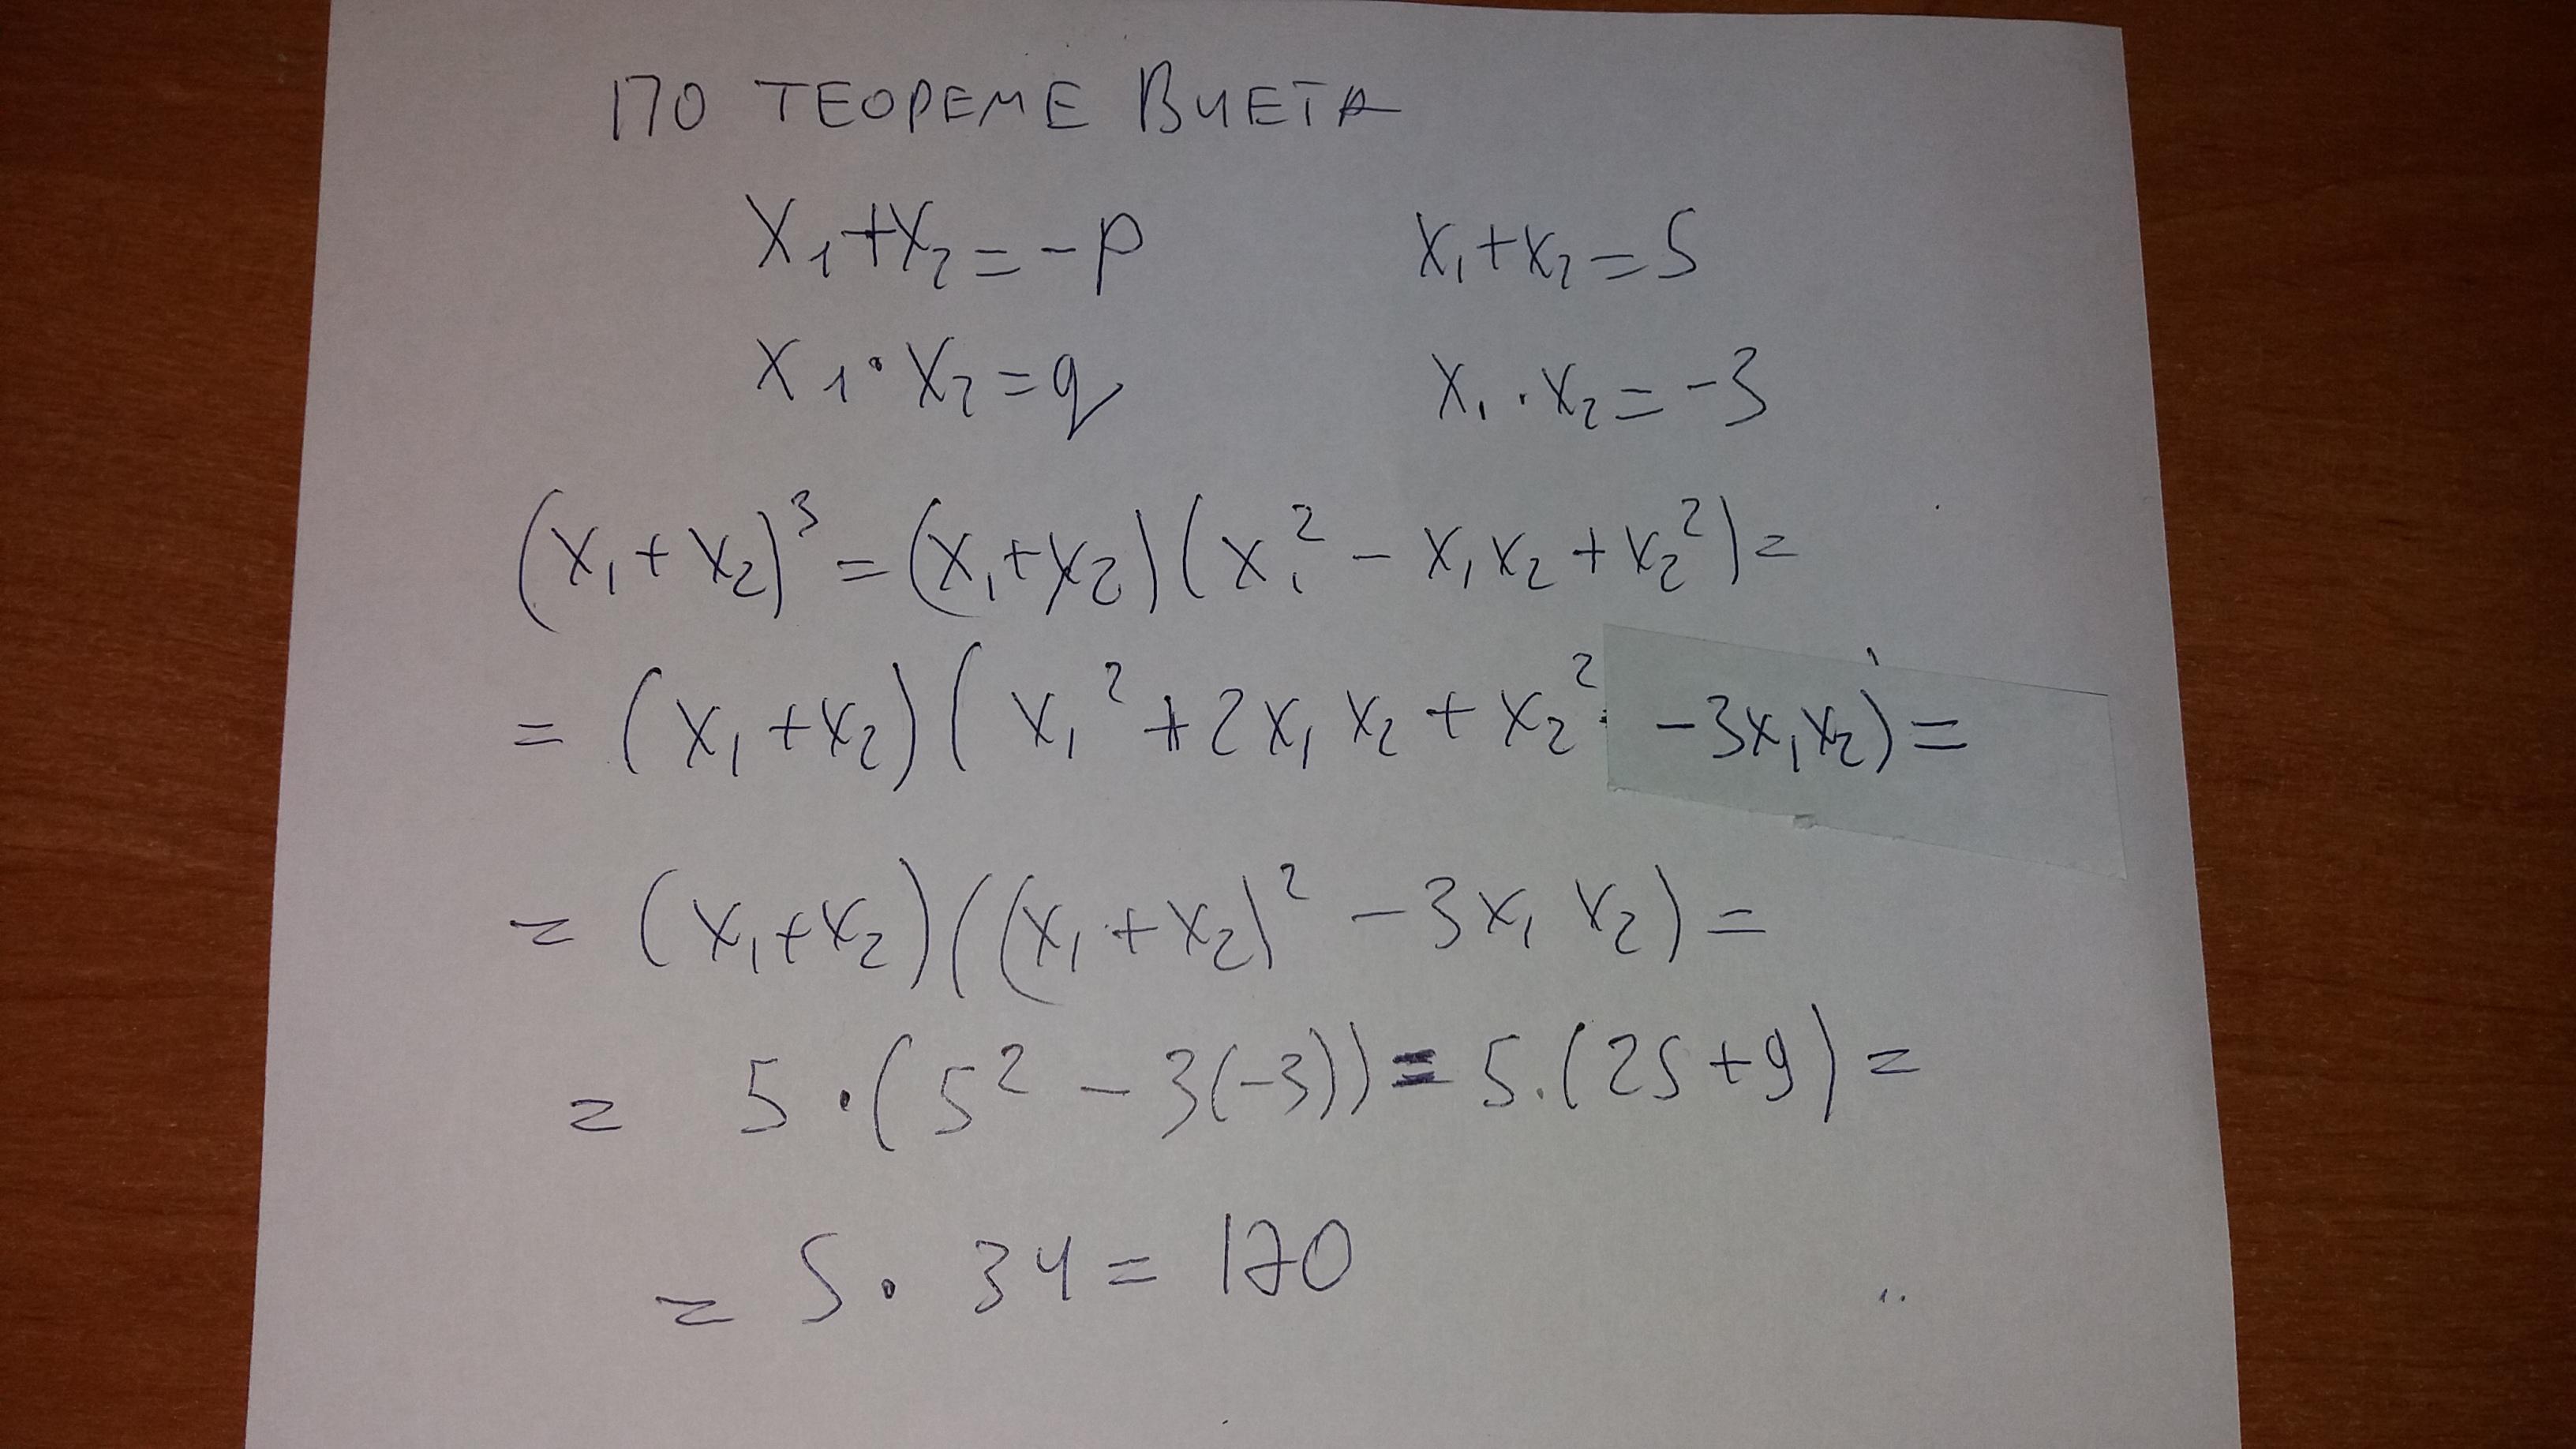 ПО ТЕОРЕМЕ ВИЕТА
x₁+x₂=-p x₁+x₂=5
x₁·x₂=q x₁·x₂=-3
(x₁+x₂)³=(x₁+x₂)(x₁²-x₁x₂+x₂²)=
=(x₁+x₂)(x₁²+2x₁x₂+x₂²-3x₁x₂)=
=(x₁+x₂)((x₁+x₂)²-3x₁x₂)=
=5·(5²-3(-3))=5·(25+9)=
=5·34=170